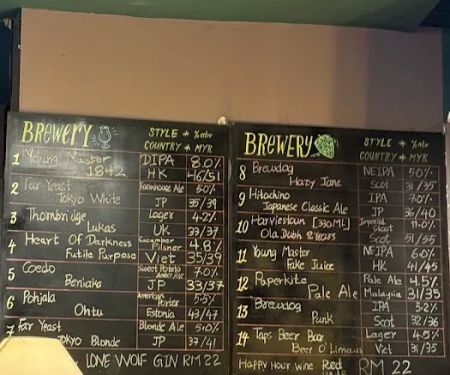 BREWERY STYLE * %abv
COUNTRY * MYR
1 Young Master DIPA 8.0%
1842 HK 46/51
2 Far Yeast Farmhouse Ale 5.0%
Tokyo White JP 35/39
3 Thornbridge Lager 4.2%
Lukas UK 33/37
4 Heart Of Darkness Cucumber Pilsner 4.8%
Futile Purpose Viet 35/39
5 Coedo Sweet Potato Amber Ale 7.0%
Beniaka JP 33/37
6 Pohjala American Porter 5.5%
Ohtu Estonia 43/47
7 Far Yeast Blonde Ale 5.0%
Tokyo Blonde JP 37/41
LONE WOLF GIN RM 22
BREWERY STYLE * %abv
COUNTRY * MYR
8 Brewdog NEIPA 5.0%
Hazy Jane Scot 31/35
9 Hitachino IPA 7.0%
Japanese Classic Ale JP 36/40
10 Harviestoun [330ML] Imperial Stout 11.0%
Ola Dubh 12 Years Scot 51/55
11 Young Master NEIPA 6.0%
Fake Juice HK 41/45
12 Paperkite Pale Ale 4.5%
Pale Ale Malaysia 31/35
13 Brewdog IPA 3.2%
Punk Scot 32/36
14 Taps Beer Bar Lager 4.5%
Beer O'Limau Viet 31/35
HAPPY HOUR WINE Red RM 22